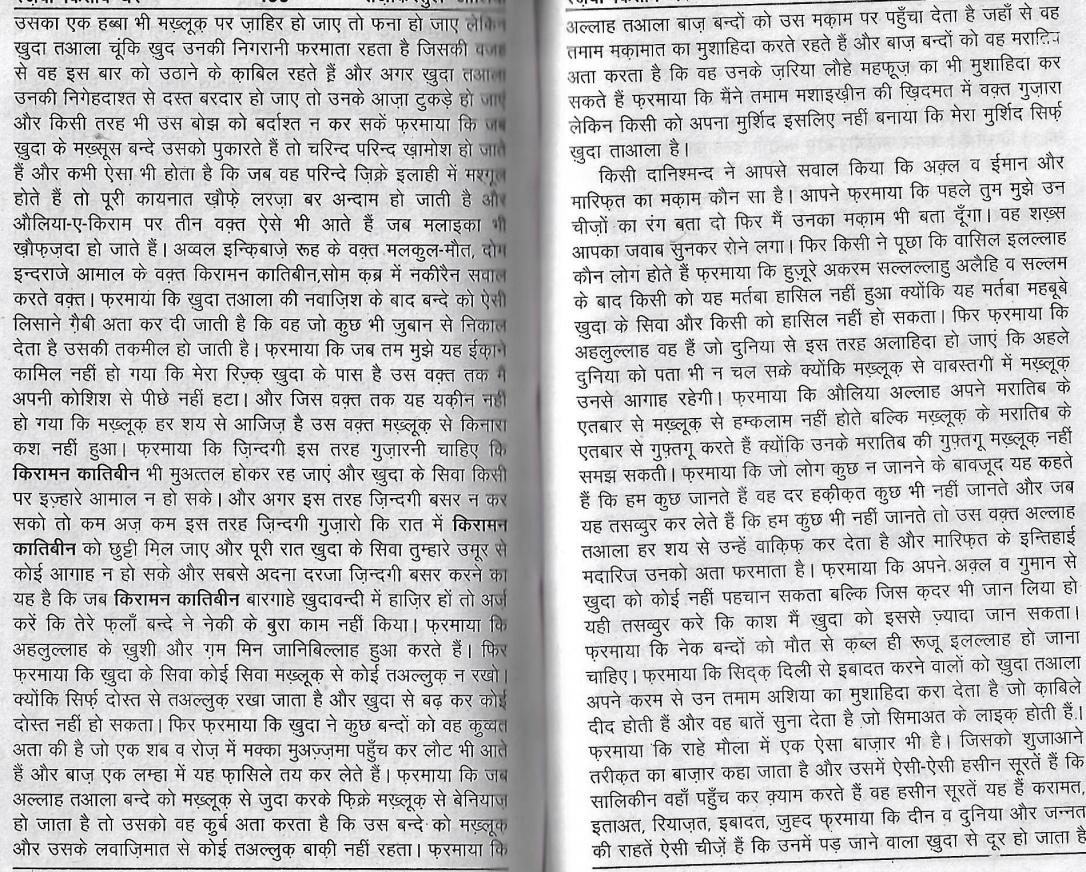 उसका एक हब्बा भी मख़्लूक़ पर ज़ाहिर हो जाए तो फना हो जाए लेकिन
ख़ुदा तआला चूंकि ख़ुद उनकी निगरानी फरमाता रहता है जिसकी वजह
से वह इस बार को उठाने के क़ाबिल रहते हैं और अगर ख़ुदा तआला
उनकी निगेहदाश्त से दस्त बरदार हो जाए तो उनके आज़ा टुकड़े हो जाएं
और किसी तरह भी उस बोझ को बर्दाश्त न कर सकें फ़रमाया कि जब
ख़ुदा के मख़्सूस बन्दे उसको पुकारते हैं तो चरिन्द परिन्द ख़ामोश हो जाते
हैं और कभी ऐसा भी होता है कि जब वह परिन्दे ज़िक्रे इलाही में मश्गूल
होते हैं तो पूरी कायनात ख़ौफ़े लरज़ा बर अन्दाम हो जाती है और
औलिया-ए-किराम पर तीन वक़्त ऐसे भी आते हैं जब मलाइका भी
ख़ौफ़ज़दा हो जाते हैं। अव्वल इन्क़िबाजे रूह के वक़्त मलकुल-मौत, दोम
इन्दराजे आमाल के वक़्त किरामन कातिबीन,सोम कब्र में नकीरैन सवाल
करते वक़्त। फरमाया कि ख़ुदा तआला की नवाज़िश के बाद बन्दे को ऐसी
लिसाने ग़ैबी अता कर दी जाती है कि वह जो कुछ भी ज़ुबान से निकाल
देता है उसकी तकमील हो जाती है। फ़रमाया कि जब तम मुझे यह ईक़ाने
कामिल नहीं हो गया कि मेरा रिज़्क़ ख़ुदा के पास है उस वक़्त तक मैं
अपनी कोशिश से पीछे नहीं हटा। और जिस वक़्त तक यह यक़ीन नहीं
हो गया कि मख़्लूक़ हर शय से आजिज़ है उस वक़्त मख़्लूक़ से किनारा
कश नहीं हुआ। फ़रमाया कि ज़िन्दगी इस तरह गुज़ारनी चाहिए कि
किरामन कातिबीन भी मुअत्तल होकर रह जाएं और ख़ुदा के सिवा किसी
पर इज़्हारे आमाल न हो सके। और अगर इस तरह ज़िन्दगी बसर न कर
सको तो कम अज़ कम इस तरह ज़िन्दगी गुज़ारो कि रात में किरामन
कातिबीन को छुट्टी मिल जाए और पूरी रात ख़ुदा के सिवा तुम्हारे उमूर से
कोई आगाह न हो सके और सबसे अदना दरजा ज़िन्दगी बसर करने का
यह है कि जब किरामन कातिबीन बारगाहे ख़ुदावन्दी में हाज़िर हों तो अर्ज
करें कि तेरे फ़लाँ बन्दे ने नेकी के बुरा काम नहीं किया। फ़रमाया कि
अहलुल्लाह के ख़ुशी और ग़म मिन जानिबिल्लाह हुआ करते हैं। फिर
फ़रमाया कि ख़ुदा के सिवा कोई सिवा मख़्लूक़ से कोई तअल्लुक़ न रखो।
क्योंकि सिर्फ़ दोस्त से तअल्लुक़ रखा जाता है और ख़ुदा से बढ़ कर कोई
दोस्त नहीं हो सकता। फिर फ़रमाया कि ख़ुदा ने कुछ बन्दों को वह क़ुव्वत
अता की है जो एक शब व रोज़ में मक्का मुअज़्ज़मा पहुँच कर लौट भी आते
हैं और बाज़ एक लम्हा में यह फ़ासिले तय कर लेते हैं। फ़रमाया कि जब
अल्लाह तआला बन्दे को मख़्लूक़ से जुदा करके फ़िक्रे मख़्लूक़ से बेनियाज़
हो जाता है तो उसको वह क़ुर्ब अता करता है कि उस बन्दे को मख़्लूक़
और उसके लवाज़िमात से कोई तअल्लुक़ बाक़ी नहीं रहता। फ़रमाया कि
अल्लाह तआला बाज़ बन्दों को उस मक़ाम पर पहुँचा देता है जहाँ से वह
तमाम मक़ामात का मुशाहिदा करते रहते हैं और बाज़ बन्दों को वह मरातिब
अता करता है कि वह उनके ज़रिया लौहे महफ़ूज़ का भी मुशाहिदा कर
सकते हैं फ़रमाया कि मैंने तमाम मशाइख़ीन की ख़िदमत में वक़्त गुज़ारा
लेकिन किसी को अपना मुर्शिद इसलिए नहीं बनाया कि मेरा मुर्शिद सिर्फ़
ख़ुदा ताआला है।
किसी दानिश्मन्द ने आपसे सवाल किया कि अक़्ल व ईमान और
मारिफ़त का मक़ाम कौन सा है। आपने फ़रमाया कि पहले तुम मुझे उन
चीज़ों का रंग बता दो फिर मैं उनका मक़ाम भी बता दूँगा। वह शख़्स
आपका जवाब सुनकर रोने लगा। फिर किसी ने पूछा कि वासिल इलल्लाह
कौन लोग होते हैं फ़रमाया कि हुज़ूरे अकरम सल्लल्लाहु अलैहि व सल्लम
के बाद किसी को यह मर्तबा हासिल नहीं हुआ क्योंकि यह मर्तबा महबूबे
ख़ुदा के सिवा और किसी को हासिल नहीं हो सकता। फिर फ़रमाया कि
अहलुल्लाह वह हैं जो दुनिया से इस तरह अलाहिदा हो जाएं कि अहले
दुनिया को पता भी न चल सके क्योंकि मख़्लूक़ से वाबस्तगी में मख़्लूक़
उनसे आगाह रहेगी। फ़रमाया कि औलिया अल्लाह अपने मरातिब के
एतबार से मख़्लूक़ से हम्कलाम नहीं होते बल्कि मख़्लूक़ के मरातिब के
एतबार से गुफ़्तगू करते हैं क्योंकि उनके मरातिब की गुफ़्तगू मख़्लूक़ नहीं
समझ सकती। फ़रमाया कि जो लोग कुछ न जानने के बावजूद यह कहते
हैं कि हम कुछ जानते हैं वह दर हक़ीक़त कुछ भी नहीं जानते और जब
यह तसव्वुर कर लेते हैं कि हम कुछ भी नहीं जानते तो उस वक़्त अल्लाह
तआला हर शय से उन्हें वाक़िफ़ कर देता है और मारिफ़त के इन्तिहाई
मदारिज उनको अता फरमाता है। फ़रमाया कि अपने अक़्ल व गुमान से
ख़ुदा को कोई नहीं पहचान सकता बल्कि जिस क़दर भी जान लिया हो
यही तसव्वुर करे कि काश मैं ख़ुदा को इससे ज़्यादा जान सकता।
फ़रमाया कि नेक बन्दों को मौत से क़ब्ल ही रूजू इलल्लाह हो जाना
चाहिए। फ़रमाया कि सिद्क़ दिली से इबादत करने वालों को ख़ुदा तआला
अपने करम से उन तमाम अशिया का मुशाहिदा करा देता है जो क़ाबिले
दीद होती हैं और वह बातें सुना देता है जो सिमाअत के लाइक़ होती हैं।
फ़रमाया कि राहे मौला में एक ऐसा बाज़ार भी है। जिसको शुजाआने
तरीक़त का बाज़ार कहा जाता है और उसमें ऐसी-ऐसी हसीन सूरतें हैं कि
सालिकीन वहाँ पहुँच कर क़्याम करते हैं वह हसीन सूरतें यह हैं करामत,
इताअत, रियाज़त, इबादत, ज़ुह्द फ़रमाया कि दीन व दुनिया और जन्नत
की राहतें ऐसी चीज़ें हैं कि उनमें पड़ जाने वाला ख़ुदा से दूर हो जाता है